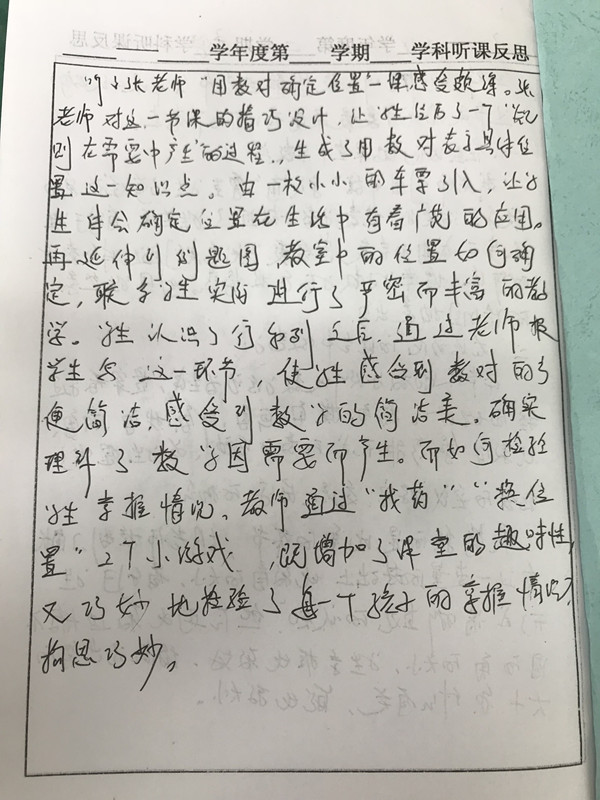 学年度第 学期 学科听课反思
听了张老师“用数对确定位置”一课感受颇深。张
老师对这一节课的精巧设计，让学生经历了一个“规
则在需要中产生”的过程，生成了用数对表示具体位
置这一知识点。由一枚小小的车票引入，让学
生体会确定位置在生活中有着广范的应用。
再延伸到例题图，教室中的位置如何确
定，联系学生实际进行了严密而丰富的教
学。学生认识了行和列之后，通过老师报
学生写这一环节，使学生感受到数对的方
便简洁，感受到数学的简洁美。确实
理解了数学因需要而产生。而如何检验
学生掌握情况，教师通过“找药”“换位
置”2个小游戏，既增加了课堂的趣味性，
又巧妙地检验了每一个孩子的掌握情况，
构思巧妙。